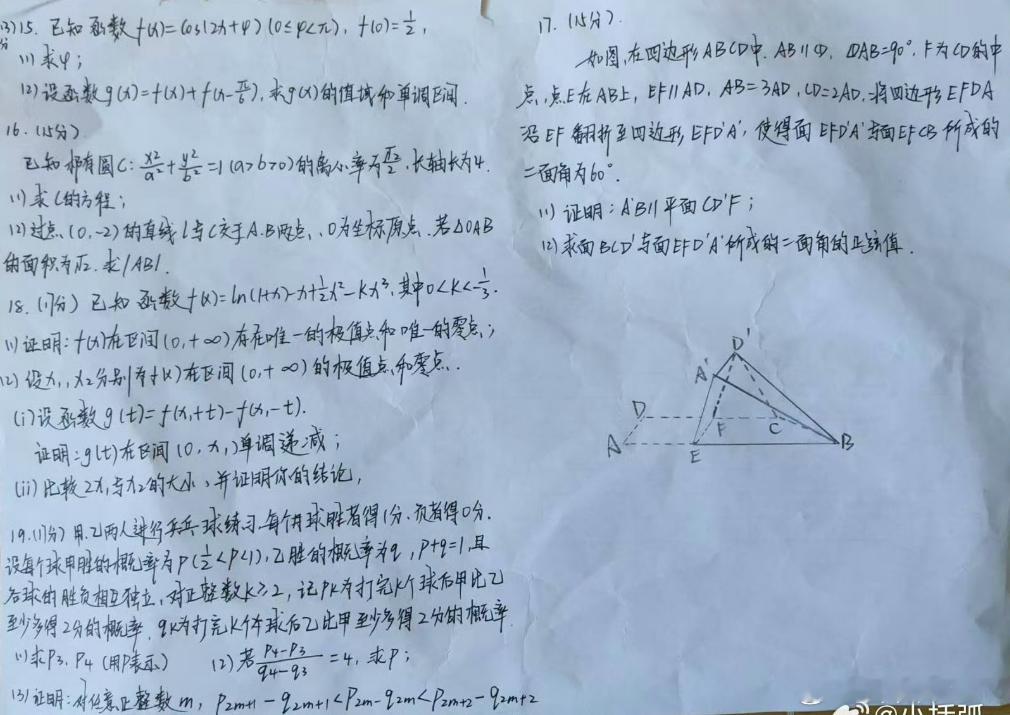 (13分)15. 已知函数f(x)=cos(2x+φ)(0≤φ<π), f(0)=1/2,
(1) 求φ;
(2) 设函数g(x)=f(x)+f(x-π/6), 求g(x)的值域和单调区间.
16. (15分)
已知椭圆C: x²/a²+y²/b²=1(a>b>0)的离心率为√2/2, 长轴长为4.
(1) 求C的方程;
(2) 过点(0,-2)的直线l与C交于A.B两点, O为坐标原点, 若△OAB
的面积为√2, 求|AB|.
18. (17分) 已知函数f(x)=ln(1+x)-x+1/2x²-kx³, 其中0<k<1/3.
(1) 证明: f(x)在区间(0,+∞)存在唯一的极值点和唯一的零点;
(2) 设x₁, x₂分别为f(x)在区间(0,+∞)的极值点和零点.
(i) 设函数g(t)=f(x₁+t)-f(x₁-t).
证明: g(t)在区间(0,x₁)单调递减;
(ii) 比较2x₁与x₂的大小, 并证明你的结论,
19. (17分) 甲、乙两人进行乒乓球练习, 每个球胜者得1分, 负者得0分.
设每个球甲胜的概率为P(1/2<P<1), 乙胜的概率为q, p+q=1, 且
各球的胜负相互独立, 对正整数k≥2, 记Pk为打完k个球后甲比乙
至少多得2分的概率, qk为打完k个球后乙比甲至少多得2分的概率.
(1) 求P3, P4 (用P表示) (2) 若(P4-P3)/(q4-q3)=4, 求P;
(3) 证明: 对任意正整数m, P2m+1-q2m+1<P2m-q2m<P2m+2-q2m+2
17. (15分).
如图, 在四边形ABCD中, AB∥CD, ∠DAB=90°, F为CD的中
点, 点E在AB上, EF∥AD, AB=3AD, CD=2AD, 将四边形EFDA
沿EF翻折至四边形, EFD'A', 使得面EFD'A'与面EFCB所成的
二面角为60°.
(1) 证明: A'B∥平面CD'F;
(2) 求面BCD'与面EFD'A'所成的二面角的正弦值.
D'
A'
D
F
C
A
E
B
@小括弧